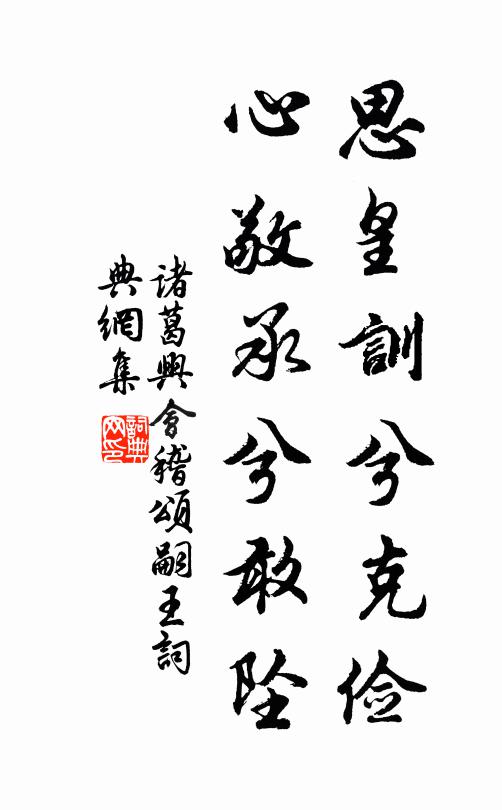 思皇訓兮克儉
心敬承兮敢墜
諸葛興會稽頌嗣王詞
典網集
詞典
网印